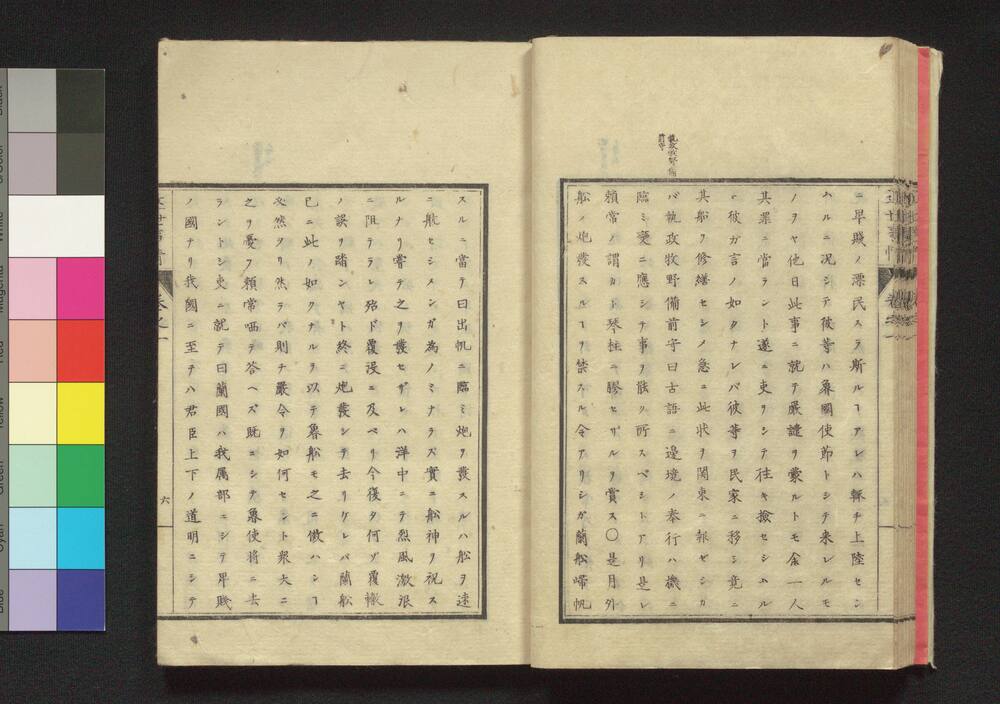 執政牧野備
前守
ニ卑賤ノ漂民スラ斯ルヿアレハ輙チ上陸セシ
ムルニ况シテ彼等ハ魯國使節トシテ来レルモ
ノヲヤ他日此事ニ就テ嚴譴ヲ蒙ルトモ余一人
其罪ニ當ラント遂ニ吏ヲシテ往キ撿セシムル
ニ彼ガ言ノ如クナレバ彼等ヲ民家ニ移シ竟ニ
其船ヲ修繕セシメ急ニ此状ヲ関東ニ報ゼシカ
バ執政牧野備前守曰古語ニ邊境ノ奉行ハ機ニ
臨ミ變ニ應シテ事ヲ飯ク所スベシトアリ是レ
頼常ノ謂カト琴柱ニ膠セザルヲ賞ス〇是月外
船ノ炮發スルヿヲ禁スル令アリシガ蘭船帰帆
スルニ當リ曰出帆ニ臨ミ炮ヲ發スルハ船ヲ速
ニ航セシメンガ為ノミナラズ實ニ船神ヲ祝ス
ルナリ嘗テ之ヲ發セザレハ洋中ニテ烈風激浪
ニ阻テラレ殆ド覆没ニ及ベリ今復タ何ゾ覆轍
ノ誤ヲ踏ンヤト終ニ炮發シテ去リケレバ蘭船
已ニ此ノ如クナルヲ以テ魯船モ之ニ傚ハンヿ
必然タリ然ラバ則チ嚴令ヲ如何セント衆大ニ
之リ憂フ頼常哂テ答ヘズ既ニシテ魯使將ニ去
ラントシ吏ニ就テ曰蘭國ハ我属部ニシテ卑賤
ノ國ナリ我國ニ至テハ君臣上下ノ道明ニシテ
六